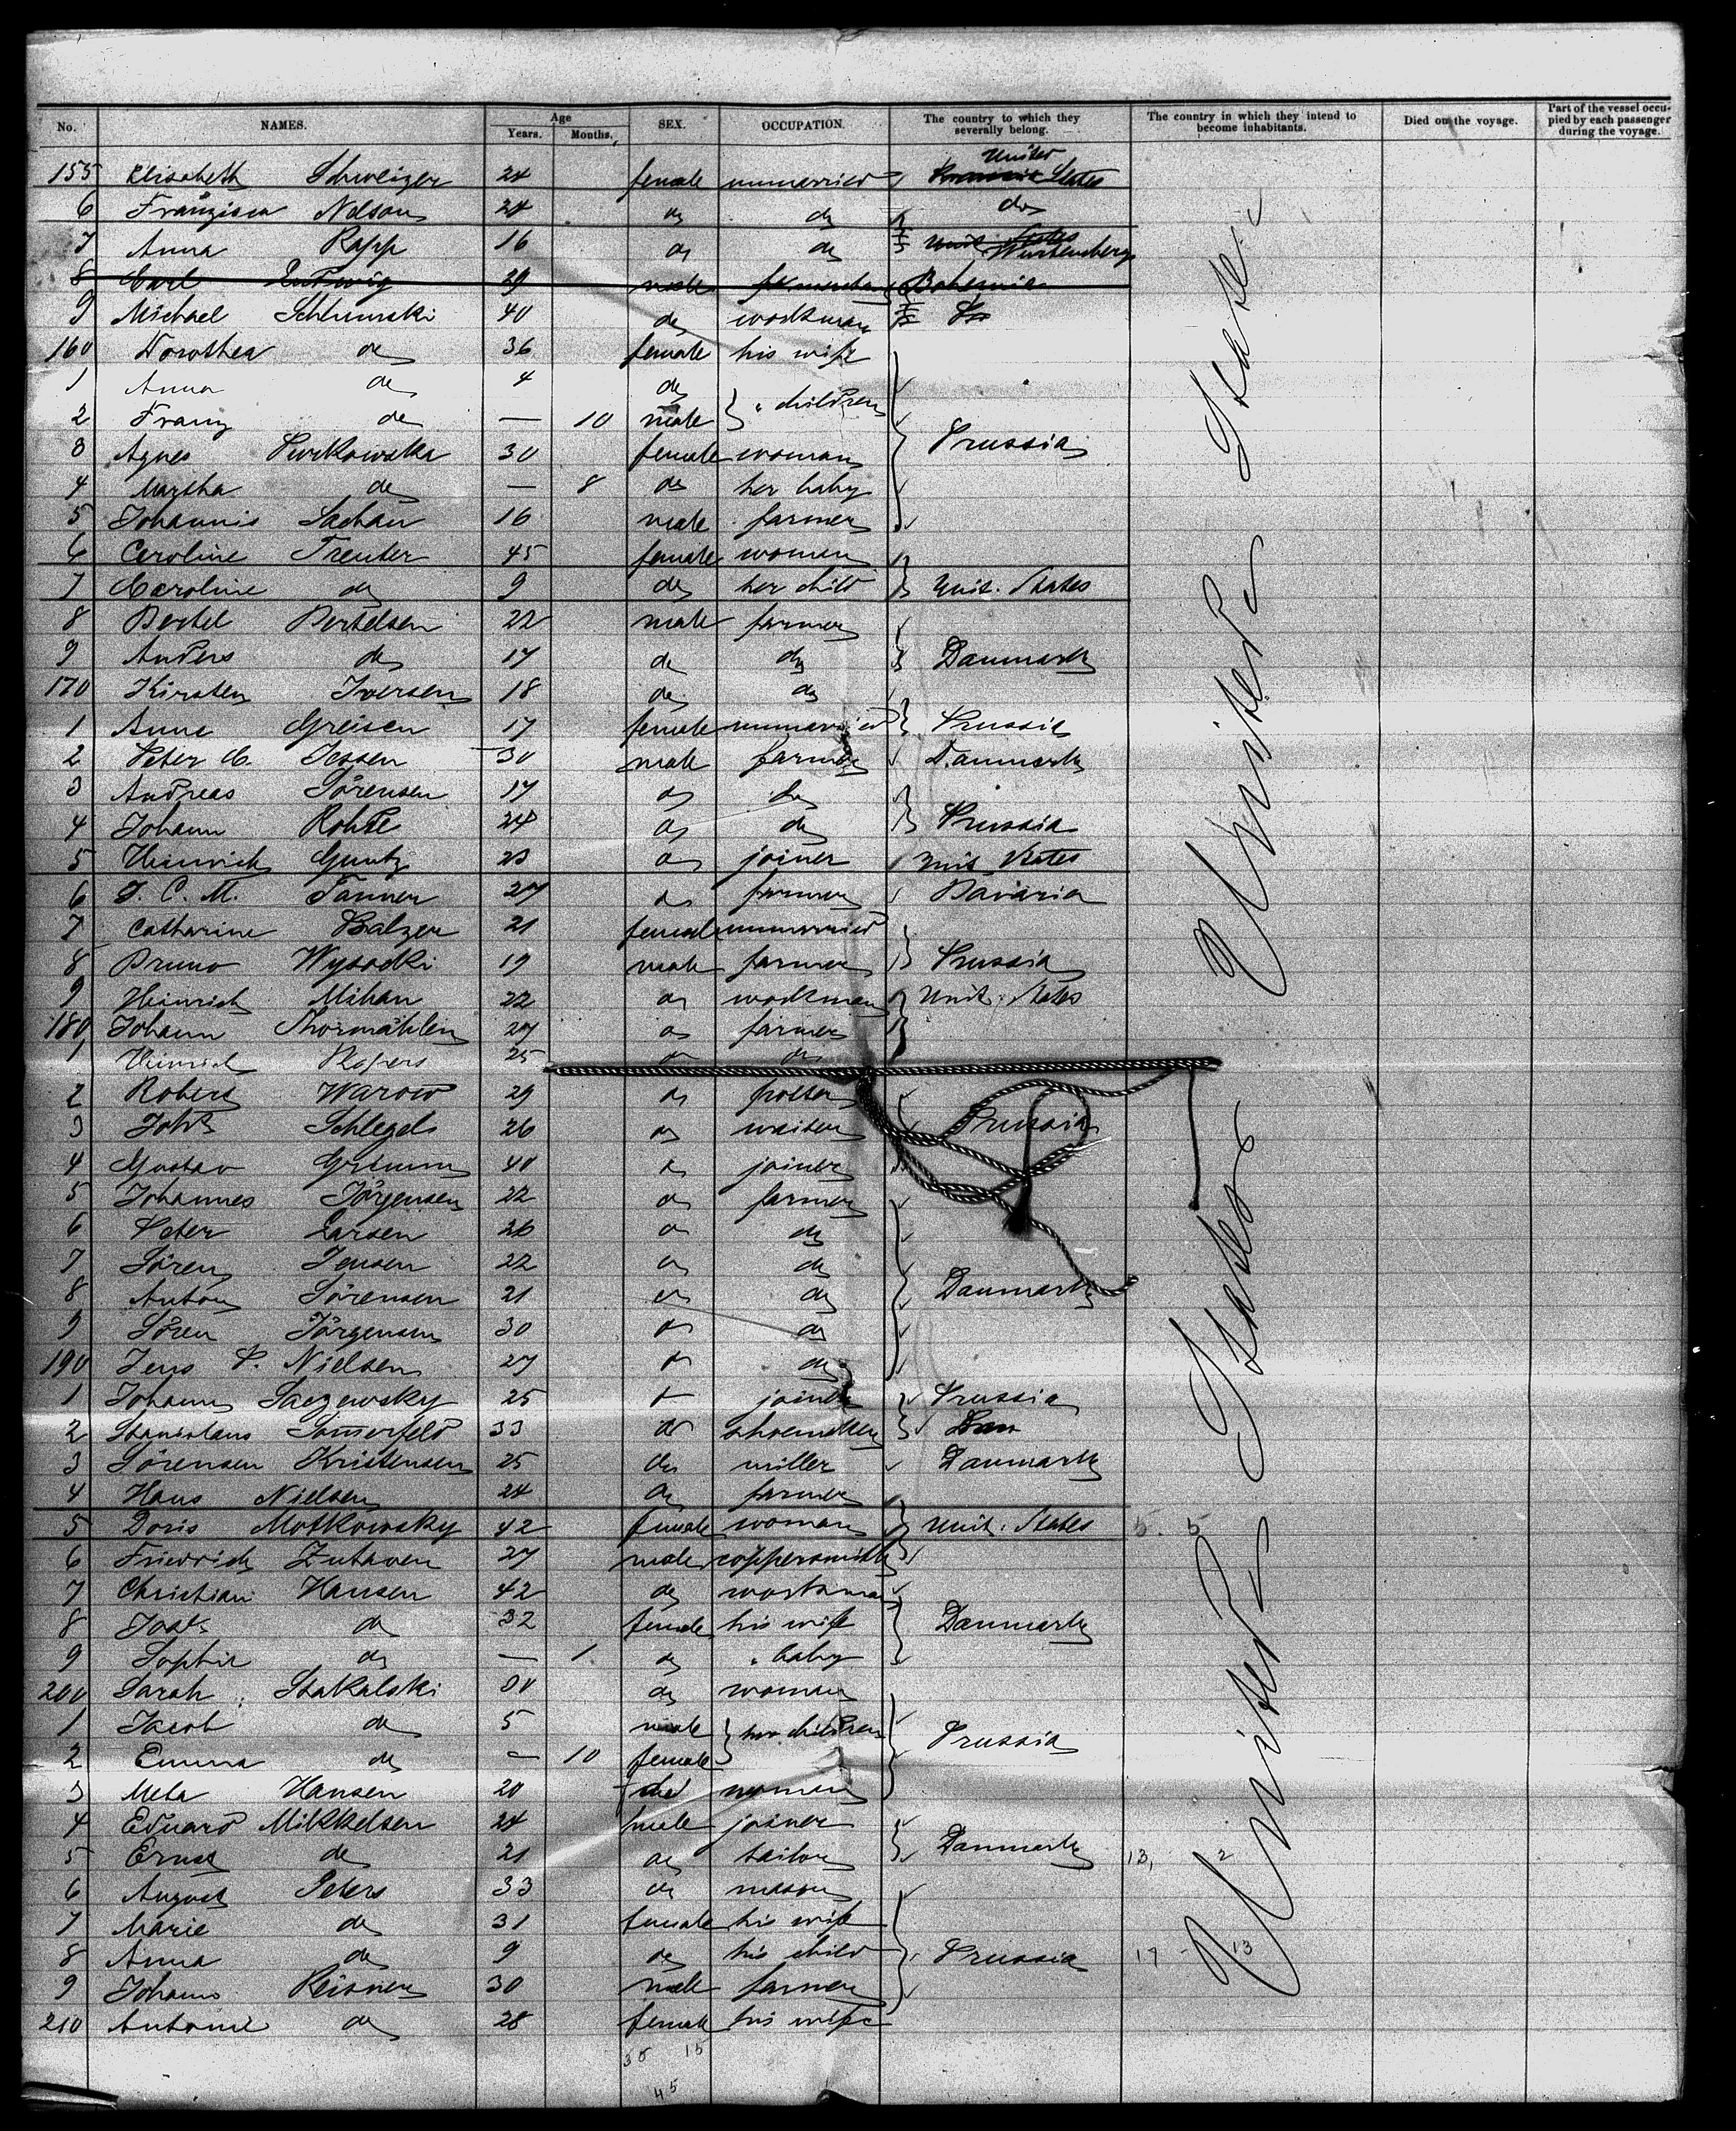 No. NAMES. Age Years. Months. SEX. OCCUPATION. The country to which they severally belong. The country in which they intend to become inhabitants. Died on the voyage. Part of the vessel occupied by each passenger during the voyage.
United
155 Elisabeth Schweizer 24 female unmarried States
6 Franzisca Nelson 24 do do do
7 Anna Rapp 16 do do Unit. States Würtemberg
8 Carl Ludwig 29 male Bohemia
9 Michael 40 do workman
160 Dorothea do 36 female his wife
1 Anna do 4 do
2 Franz do — 10 male " children
3 Agnes 30 female woman Prussia
4 Martha do — 8 do her baby
5 Johannis Sachau 16 male farmer
6 Caroline Treuter 45 female woman
7 Caroline do 9 do her child Unit. States
8 Bertel Bertelsen 22 male farmer
9 Anders do 17 do do Danmark
170 Kirsten Iversen 18 do do
1 Anna Greisen 17 female unmarried Prussia
2 Peter C. Jessen 30 male farmer Danmark
3 Andreas Sörensen 17 do do
4 Johann Rohde 24 do do Prussia
5 Heinrich Guntz 23 do joiner Unit States
6 J. C. M. Tanner 27 do farmer Bavaria
7 Catharine Balzer 21 female unmarried
8 Bruno Wysocki 19 male farmer Prussia
9 Heinrich Mihan 22 do workman Unit. States
180 Johann Thormählen 27 do farmer
1 Heinrich Rapers 25 do do
2 Robert Warow 29 do potter
3 Schlegel 26 do Prussia
4 Gustav Grimm 40 do joiner
5 Johannes Jörgensen 22 do farmer
6 Peter Larsen 26 do do
7 Sören Jensen 22 do do
8 Anton Sörensen 21 do do Danmark
9 Sören Jörgensen 30 do do
190 Jens P. Nielsen 27 do do
1 Johann Saezewsky 25 do joiner Prussia
2 Stanislaus Somerfeld 33 do shoemaker
3 Sörensen Kristensen 25 do miller Danmark
4 Hans Nielsen 24 do farmer
5 Doris Motkowsky 42 female woman Unit. States 5. 5
6 Friedrich Zutavern 27 male coppersmith
7 Christian Hansen 42 do workman
8 do 32 female his wife Danmark
9 Sophie do — 1 do " baby
200 Sarah Stakalski 30 do woman
1 Jacob do 5 male her children Prussia
2 Emma do — 10 female
3 Meta Hansen 20 woman
4 Eduard Mikkelsen 24 male joiner
5 Ernst do 21 do tailor Danmark 13, 2
6 August Peters 33 do mason
7 Marie do 31 female his wife
8 Anna do 9 do his child Prussia 17 - 13
9 Johann Reisner 30 male farmer
210 Antonie do 28 female his wife
United States
United States
35 15
45